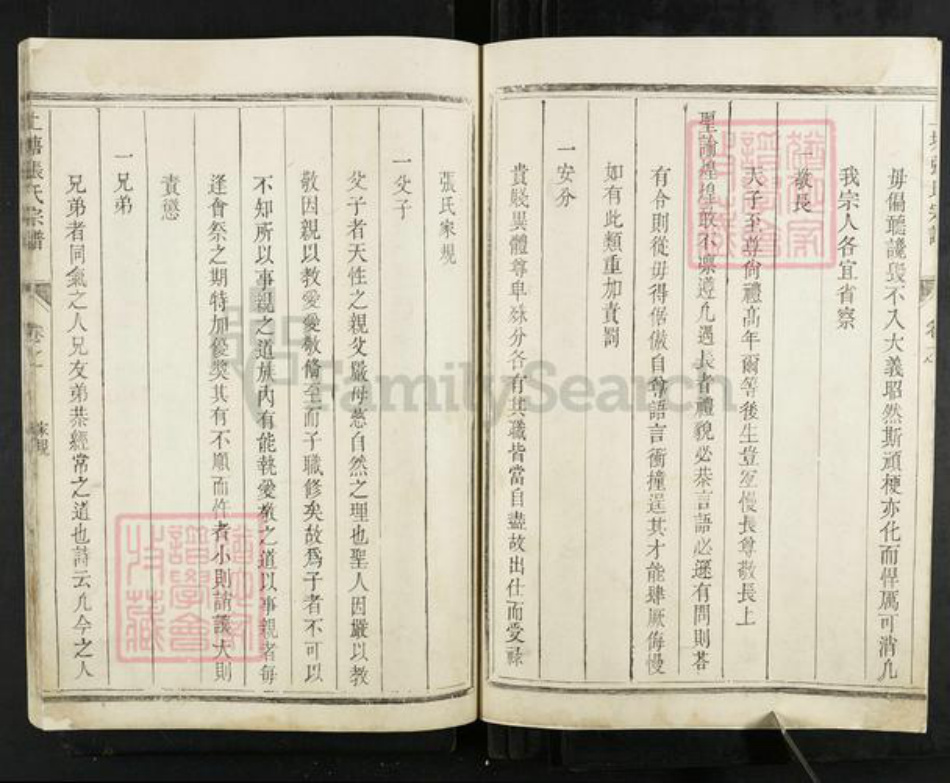 毋偏聽讒毁不入大義昭然斯頑梗亦化而悍厲可消凡
我宗人各宜省察
一敬長
天子至尊尚禮高年爾等後生豈宜慢長尊敬長上
聖諭煌煌敢不凜遵凡遇長者禮貌必恭言語必遜有問則荅
有令則從毋得倨傲自尊語言衝撞逞其才能肆厥侮慢
如有此類重加責罰
一安分
貴賤異體尊卑殊分各有其職皆當自盡故出仕而受祿
張氏家規
一父子
父子者天性之親父嚴母慈自然之理也聖人因嚴以教
敬因親以教愛愛敬備至而子職修矣故爲子者不可以
不知所以事親之道族内有能執愛敬之道以事親者每
逢會祭之期特加優獎其有不順而忤者小則誚議大則
責懲
一兄弟
兄弟者同氣之人兄友弟恭經常之道也詩云凡今之人
張氏宗譜
家規
FamilySearch